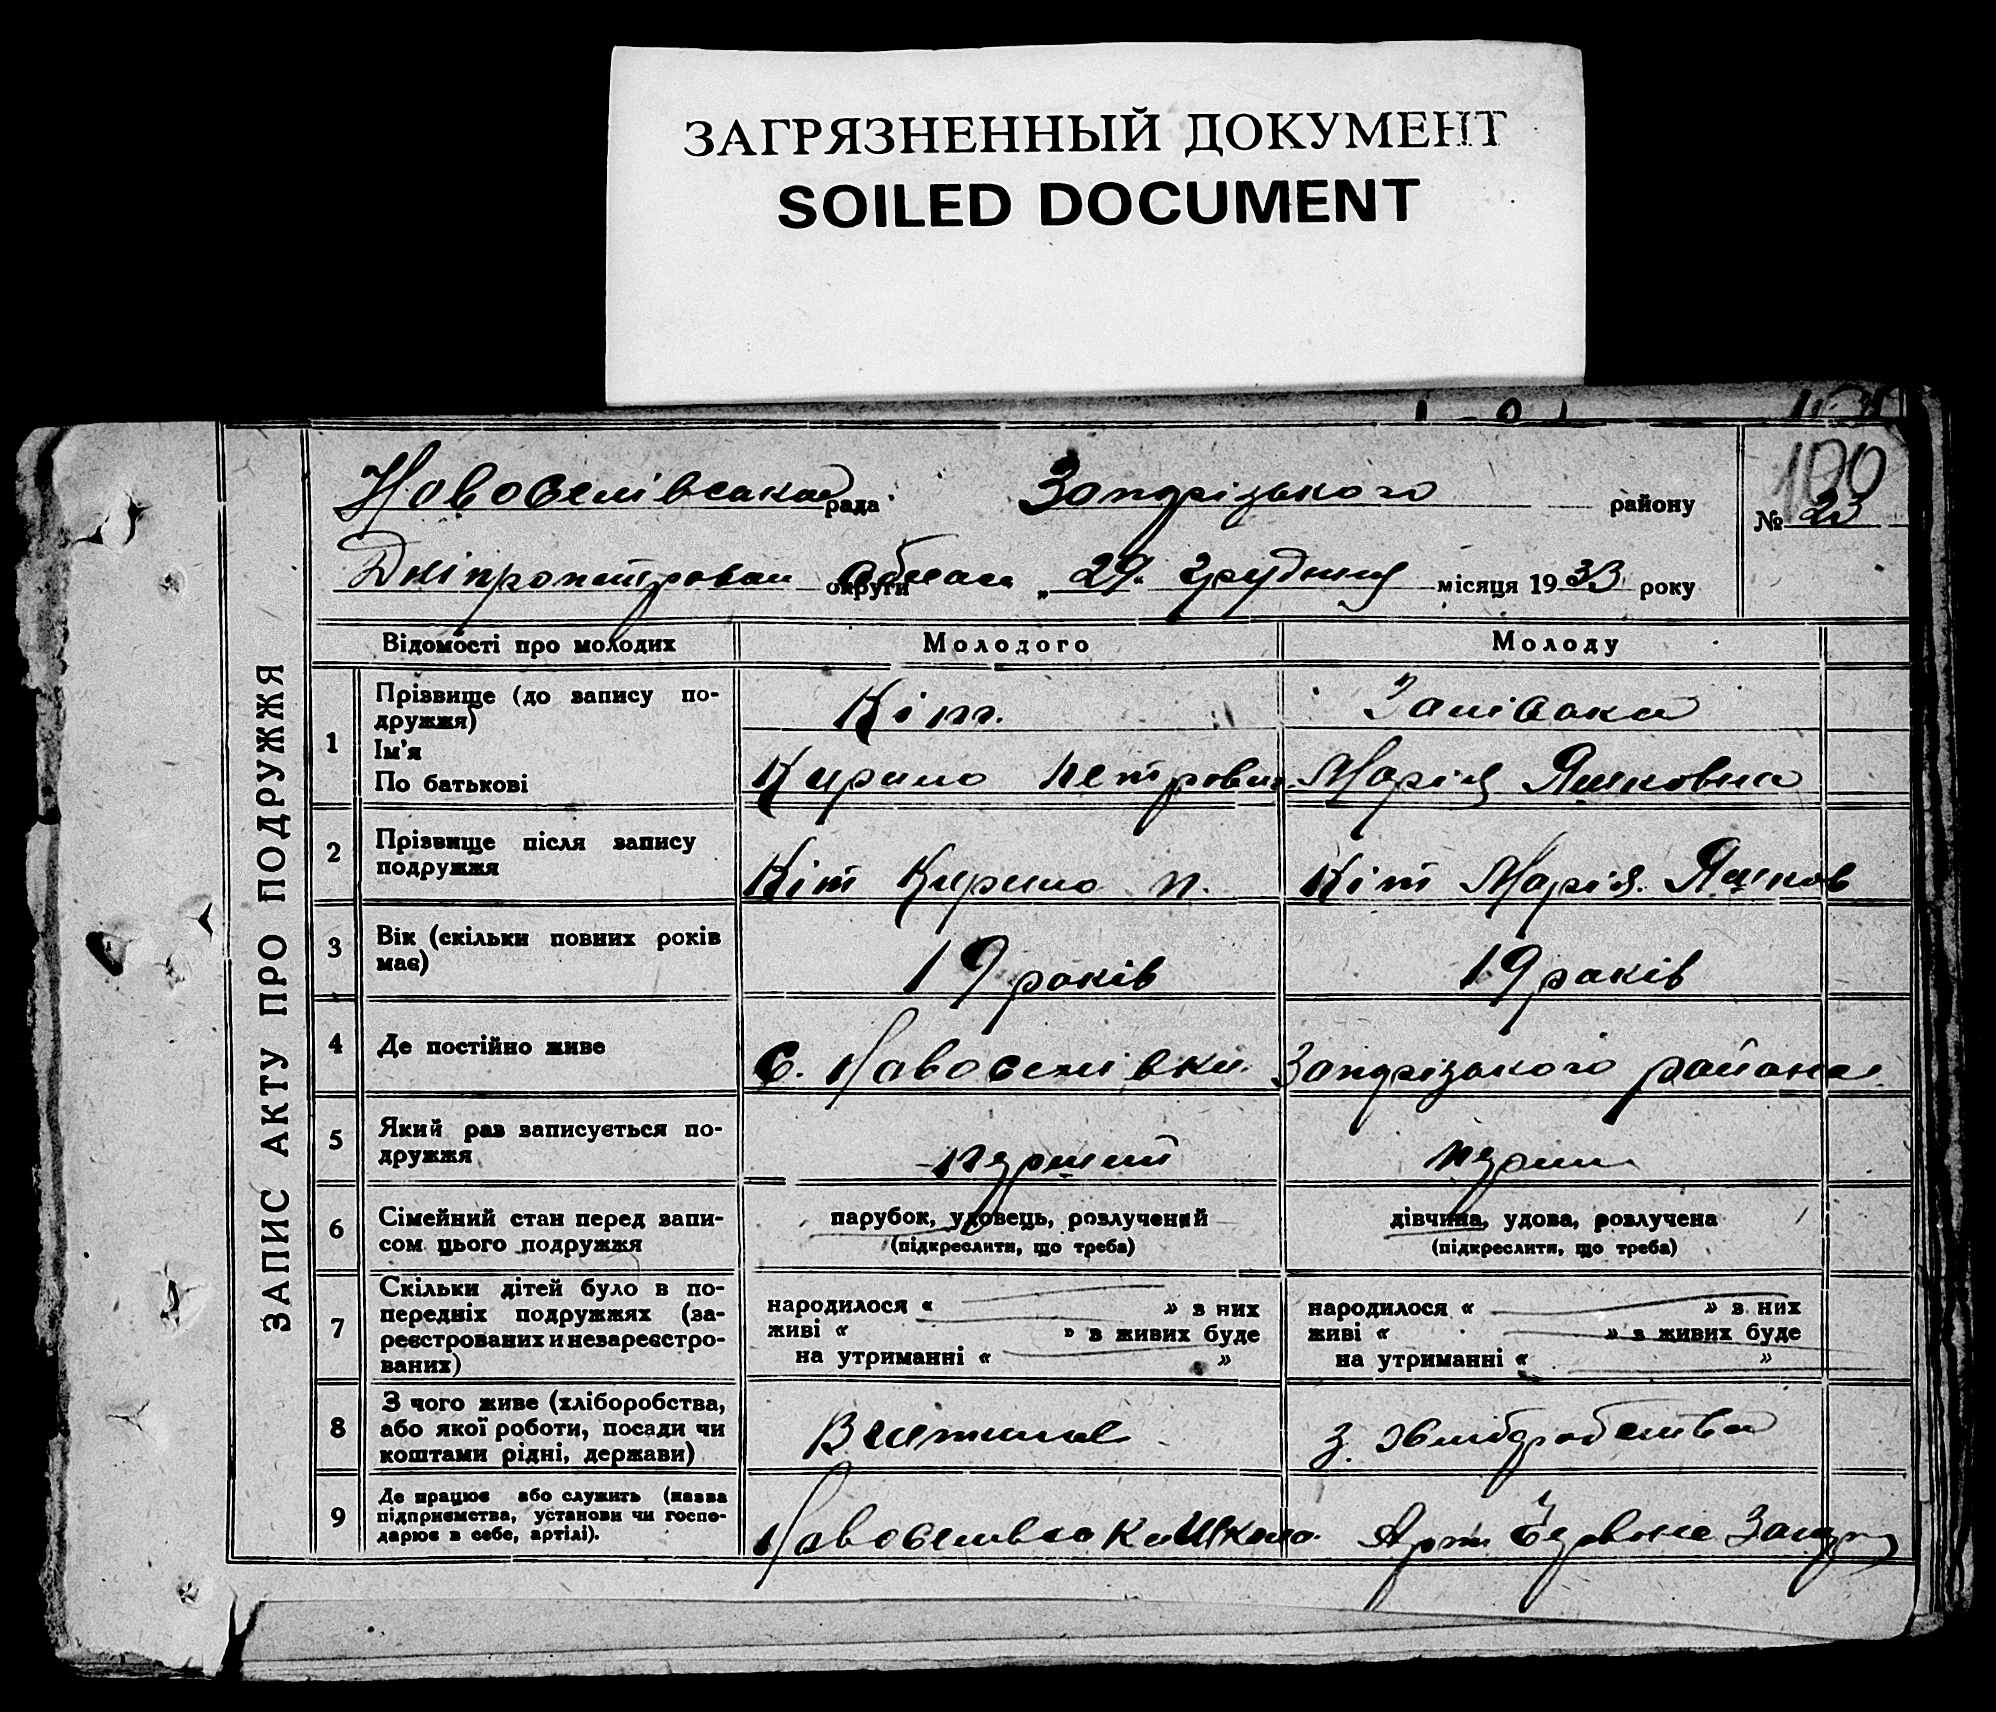 ЗАГРЯЗНЕННЫЙ ДОКУМЕНТ
SOILED DOCUMENT
100
Новоселівська рада Запорізького району № 23
Дніпропетровськ округи област „ 29. грудня місяця 1933 року
ЗАПИС АКТУ ПРО ПОДРУЖЖЯ
Відомості про молодих Молодого Молоду
1 Прізвище (до запису по-
дружжя) Кіт.
Ім'я
По батькові Кирило Петрович Марія Яшковна
2 Прізвище після запису
подружжя Кіт Кирило П. Кіт Марія Яшков
3 Вік (скільки повних років
має) 19 років 19 років
4 Де постійно живе С. Новоселівки Запорізького района
5 Який раз записується по-
дружжя перший перши
6 Сімейний стан перед запи-
сом цього подружжя
парубок, удовець, розлучений
(підкреслити, що треба)
дівчина, удова, розлучена
(підкреслити, що треба)
7 Скільки дітей було в по-
передніх подружжях (за-
реєстрованих и незареєстро-
ваних)
народилося « » в них
живі « » в живих буде
на утриманні « »
народилося « » в них
живі « » в живих буде
на утриманні « »
8 З чого живе (хліборобства,
або якої роботи, посади чи
коштами рідні, держави) Вчитиль з. хліборобства
9 Де працює або служить (назва
підприємства, установи чи госпо-
дарює в себе, артілі). Новоселівська Школа. Арт. Червоне